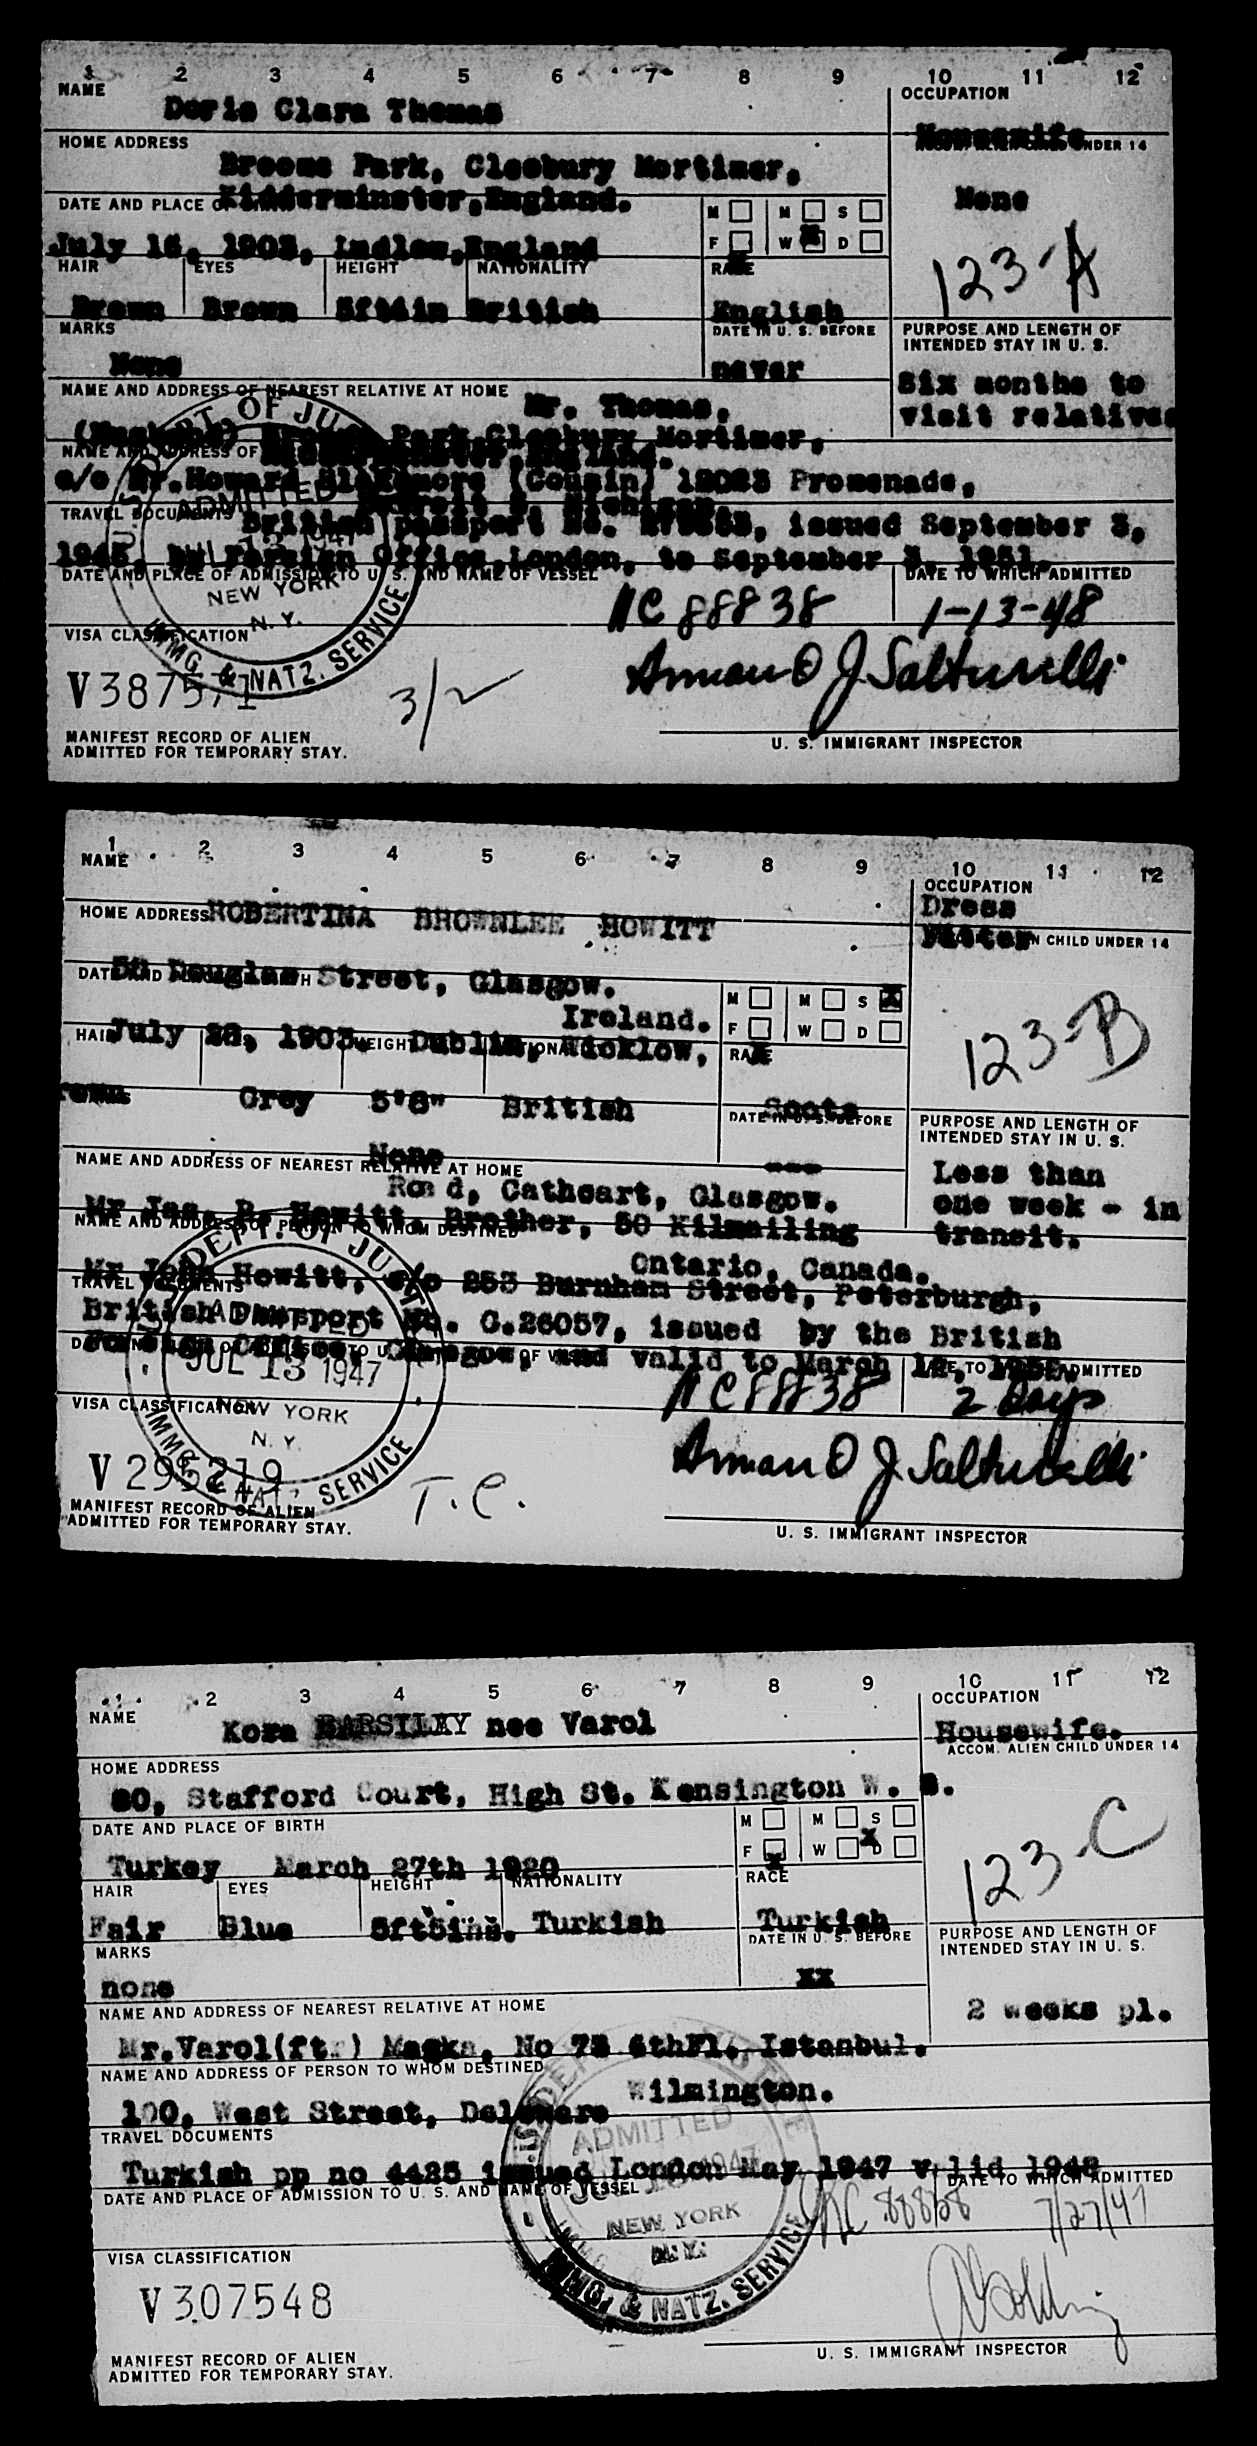 1 2 3 4 5 6 7 8 9 10 11 12
NAME
Doris Clara Thomas
OCCUPATION
Housewife
UNDER 14
HOME ADDRESS
Broome Park, Cleobury Mortimer,
Kidderminster, England.
None
DATE AND PLACE O
July 16, 1903, Ludlow, England
M M S
F W X D
123-A
HAIR EYES HEIGHT NATIONALITY RACE
Brown Brown 5ft4in British English
MARKS
None
DATE IN U. S. BEFORE
never
PURPOSE AND LENGTH OF
INTENDED STAY IN U. S.
Six months to
visit relatives
NAME AND ADDRESS OF NEAREST RELATIVE AT HOME
Mr. Thomas,
(Husband) Broome Park, Cleobury Mortimer,
NAME AND ADDRESS OF
c/o Mr. Howard (Cousin) Promenade,
TRAVEL DOCUMENTS
British passport No. issued September 3,
by Foreign Office, London, to September 3, 1951.
DATE AND PLACE OF ADMISSION TO U. S. AND NAME OF VESSEL
DATE TO WHICH ADMITTED
NC 88838 1-13-48
DEPT. OF JU
ADMITTED
JUL 13 1947
NEW YORK
N. Y.
IMMG. & NATZ. SERVICE
VISA CLASSIFICATION
V387571
3/2
MANIFEST RECORD OF ALIEN
ADMITTED FOR TEMPORARY STAY.
U. S. IMMIGRANT INSPECTOR
1 2 3 4 5 6 7 8 9 10 11 12
NAME
OCCUPATION
Dress
Fitter
N CHILD UNDER 14
HOME ADDRESS
ROBERTINA BROWNLEE HOWITT
Douglas Street, Glasgow.
Ireland.
M M S X
F W D
July 28, 1903. Dublin, Wicklow,
HAIR HEIGHT RACE
123-B
Grey 5'6" British Scots
DATE IN U. S. BEFORE
---
None
PURPOSE AND LENGTH OF
INTENDED STAY IN U. S.
Less than
one week - in
transit.
NAME AND ADDRESS OF NEAREST RELATIVE AT HOME
Road, Cathcart, Glasgow.
Mr Jas. B. Howitt, Brother, 50 Kilmailing
NAME AND ADDRESS OF PERSON TO WHOM DESTINED
Ontario, Canada.
Mr John Howitt, c/o 253 Burnham Street, Peterburgh,
TRAVEL DOCUMENTS
British Passport No. C.26057, issued by the British
Foreign Office, Glasgow, and valid to March
ADMITTED
NC 88838 2 days
DEPT. OF JU
ADMITTED
JUL 13 1947
NEW YORK
N. Y.
IMMG. & NATZ. SERVICE
VISA CLASSIFICATION
V295219
T.C.
MANIFEST RECORD OF ALIEN
ADMITTED FOR TEMPORARY STAY.
U. S. IMMIGRANT INSPECTOR
1 2 3 4 5 6 7 8 9 10 11 12
NAME
Kora BARSILAY nee Varol
OCCUPATION
Housewife.
ACCOM. ALIEN CHILD UNDER 14
HOME ADDRESS
80, Stafford Court, High St. Kensington W. 8.
DATE AND PLACE OF BIRTH
Turkey March 27th 1920
M M S
F X W X D
123 C
HAIR EYES HEIGHT NATIONALITY RACE
Fair Blue 5ft5ins. Turkish Turkish
MARKS
none
DATE IN U. S. BEFORE
xx
PURPOSE AND LENGTH OF
INTENDED STAY IN U. S.
2 weeks pl.
NAME AND ADDRESS OF NEAREST RELATIVE AT HOME
Mr.Varol(ftr) Macka, No 73 6thFl. Istanbul.
NAME AND ADDRESS OF PERSON TO WHOM DESTINED
Wilmington.
100, West Street, Delaware
TRAVEL DOCUMENTS
Turkish pp no 4425 issued London May 1947 valid 1948
DATE AND PLACE OF ADMISSION TO U. S. AND NAME OF VESSEL
DATE TO WHICH ADMITTED
NC 88838 7/27/47
ADMITTED
1947
NEW YORK
N. Y.
IMMG. & NATZ. SERVICE
VISA CLASSIFICATION
V307548
MANIFEST RECORD OF ALIEN
ADMITTED FOR TEMPORARY STAY.
U. S. IMMIGRANT INSPECTOR